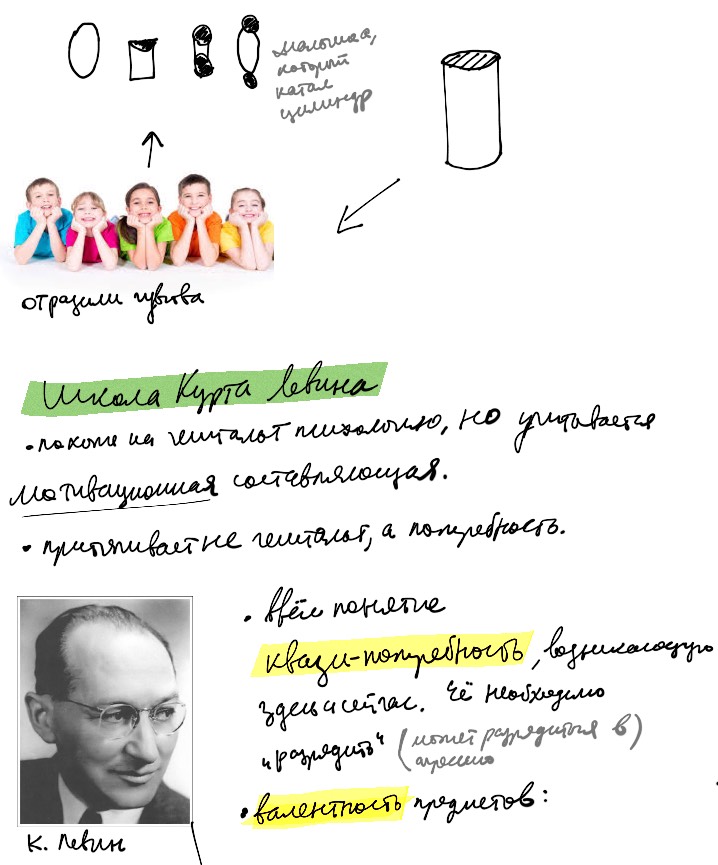 малышка,
который
катал
цилиндр
отразили чувства
Школа Курта Левина
• похоже на гештальт психологию, но учитывается
мотивационная составляющая.
• притягивает не гештальт, а потребность.
• ввёл понятие
квази-потребность, возникающую
здесь и сейчас. Её необходимо
"разрядить" (может разрядиться в)
агрессию
• валентность предметов:
К. Левин